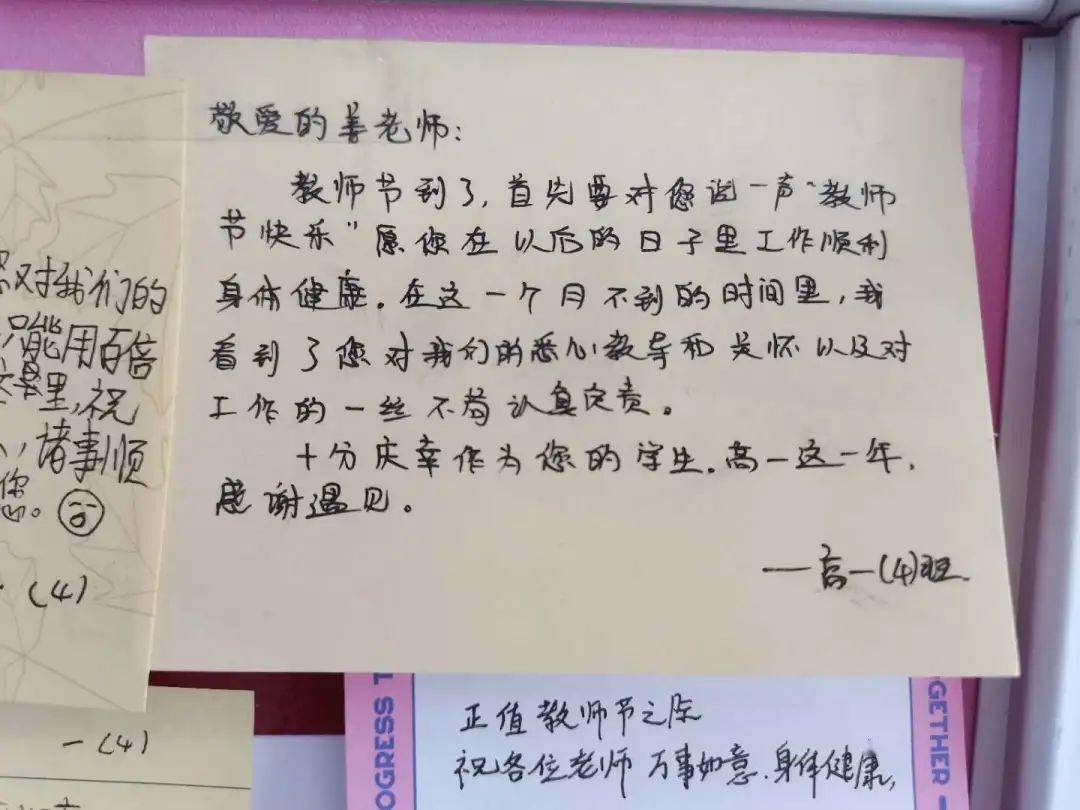 敬爱的姜老师：
教师节到了，首先要对您说一声“教师
节快乐”愿您在以后的日子里工作顺利
身体健康。在这一个月不到的时间里，我
看到了您对我们的悉心教导和关怀以及对
工作的一丝不苟认真负责。
十分庆幸作为您的学生。高一这一年，
感谢遇见。
——高一(4)班
对我们的
只能用百倍
里，祝
，诸事顺
您。
(4)
一(4)
OGRESS T
正值教师节之际
祝各位老师万事如意，身体健康，
OGETHER